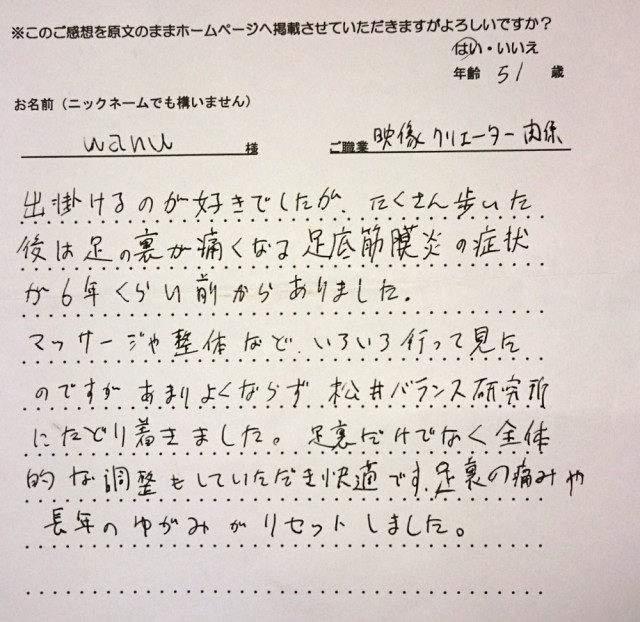 ※このご感想を原文のままホームページへ掲載させていただきますがよろしいですか？
はい・いいえ
年齢 51 歳
お名前（ニックネームでも構いません）
wanu 様 ご職業 映像クリエーター関係
出掛けるのが好きでしたが、たくさん歩いた
後は足の裏が痛くなる足底筋膜炎の症状
が6年くらい前からありました。
マッサージや整体など、いろいろ行って見た
のですがあまりよくならず、松井バランス研究所
にたどり着きました。足裏だけでなく全体
的な調整もしていただき快適です。足裏の痛みや
長年のゆがみがリセットしました。